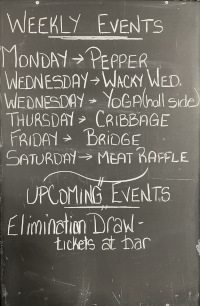 WEEKLY EVENTS
MONDAY → PEPPER
WEDNESDAY → WACKY WED.
WEDNESDAY → YOGA (hall side)
THURSDAY → CRIBBAGE
FRIDAY → BRIDGE
SATURDAY → MEAT RAFFLE
UPCOMING EVENTS
Elimination Draw -
tickets at bar